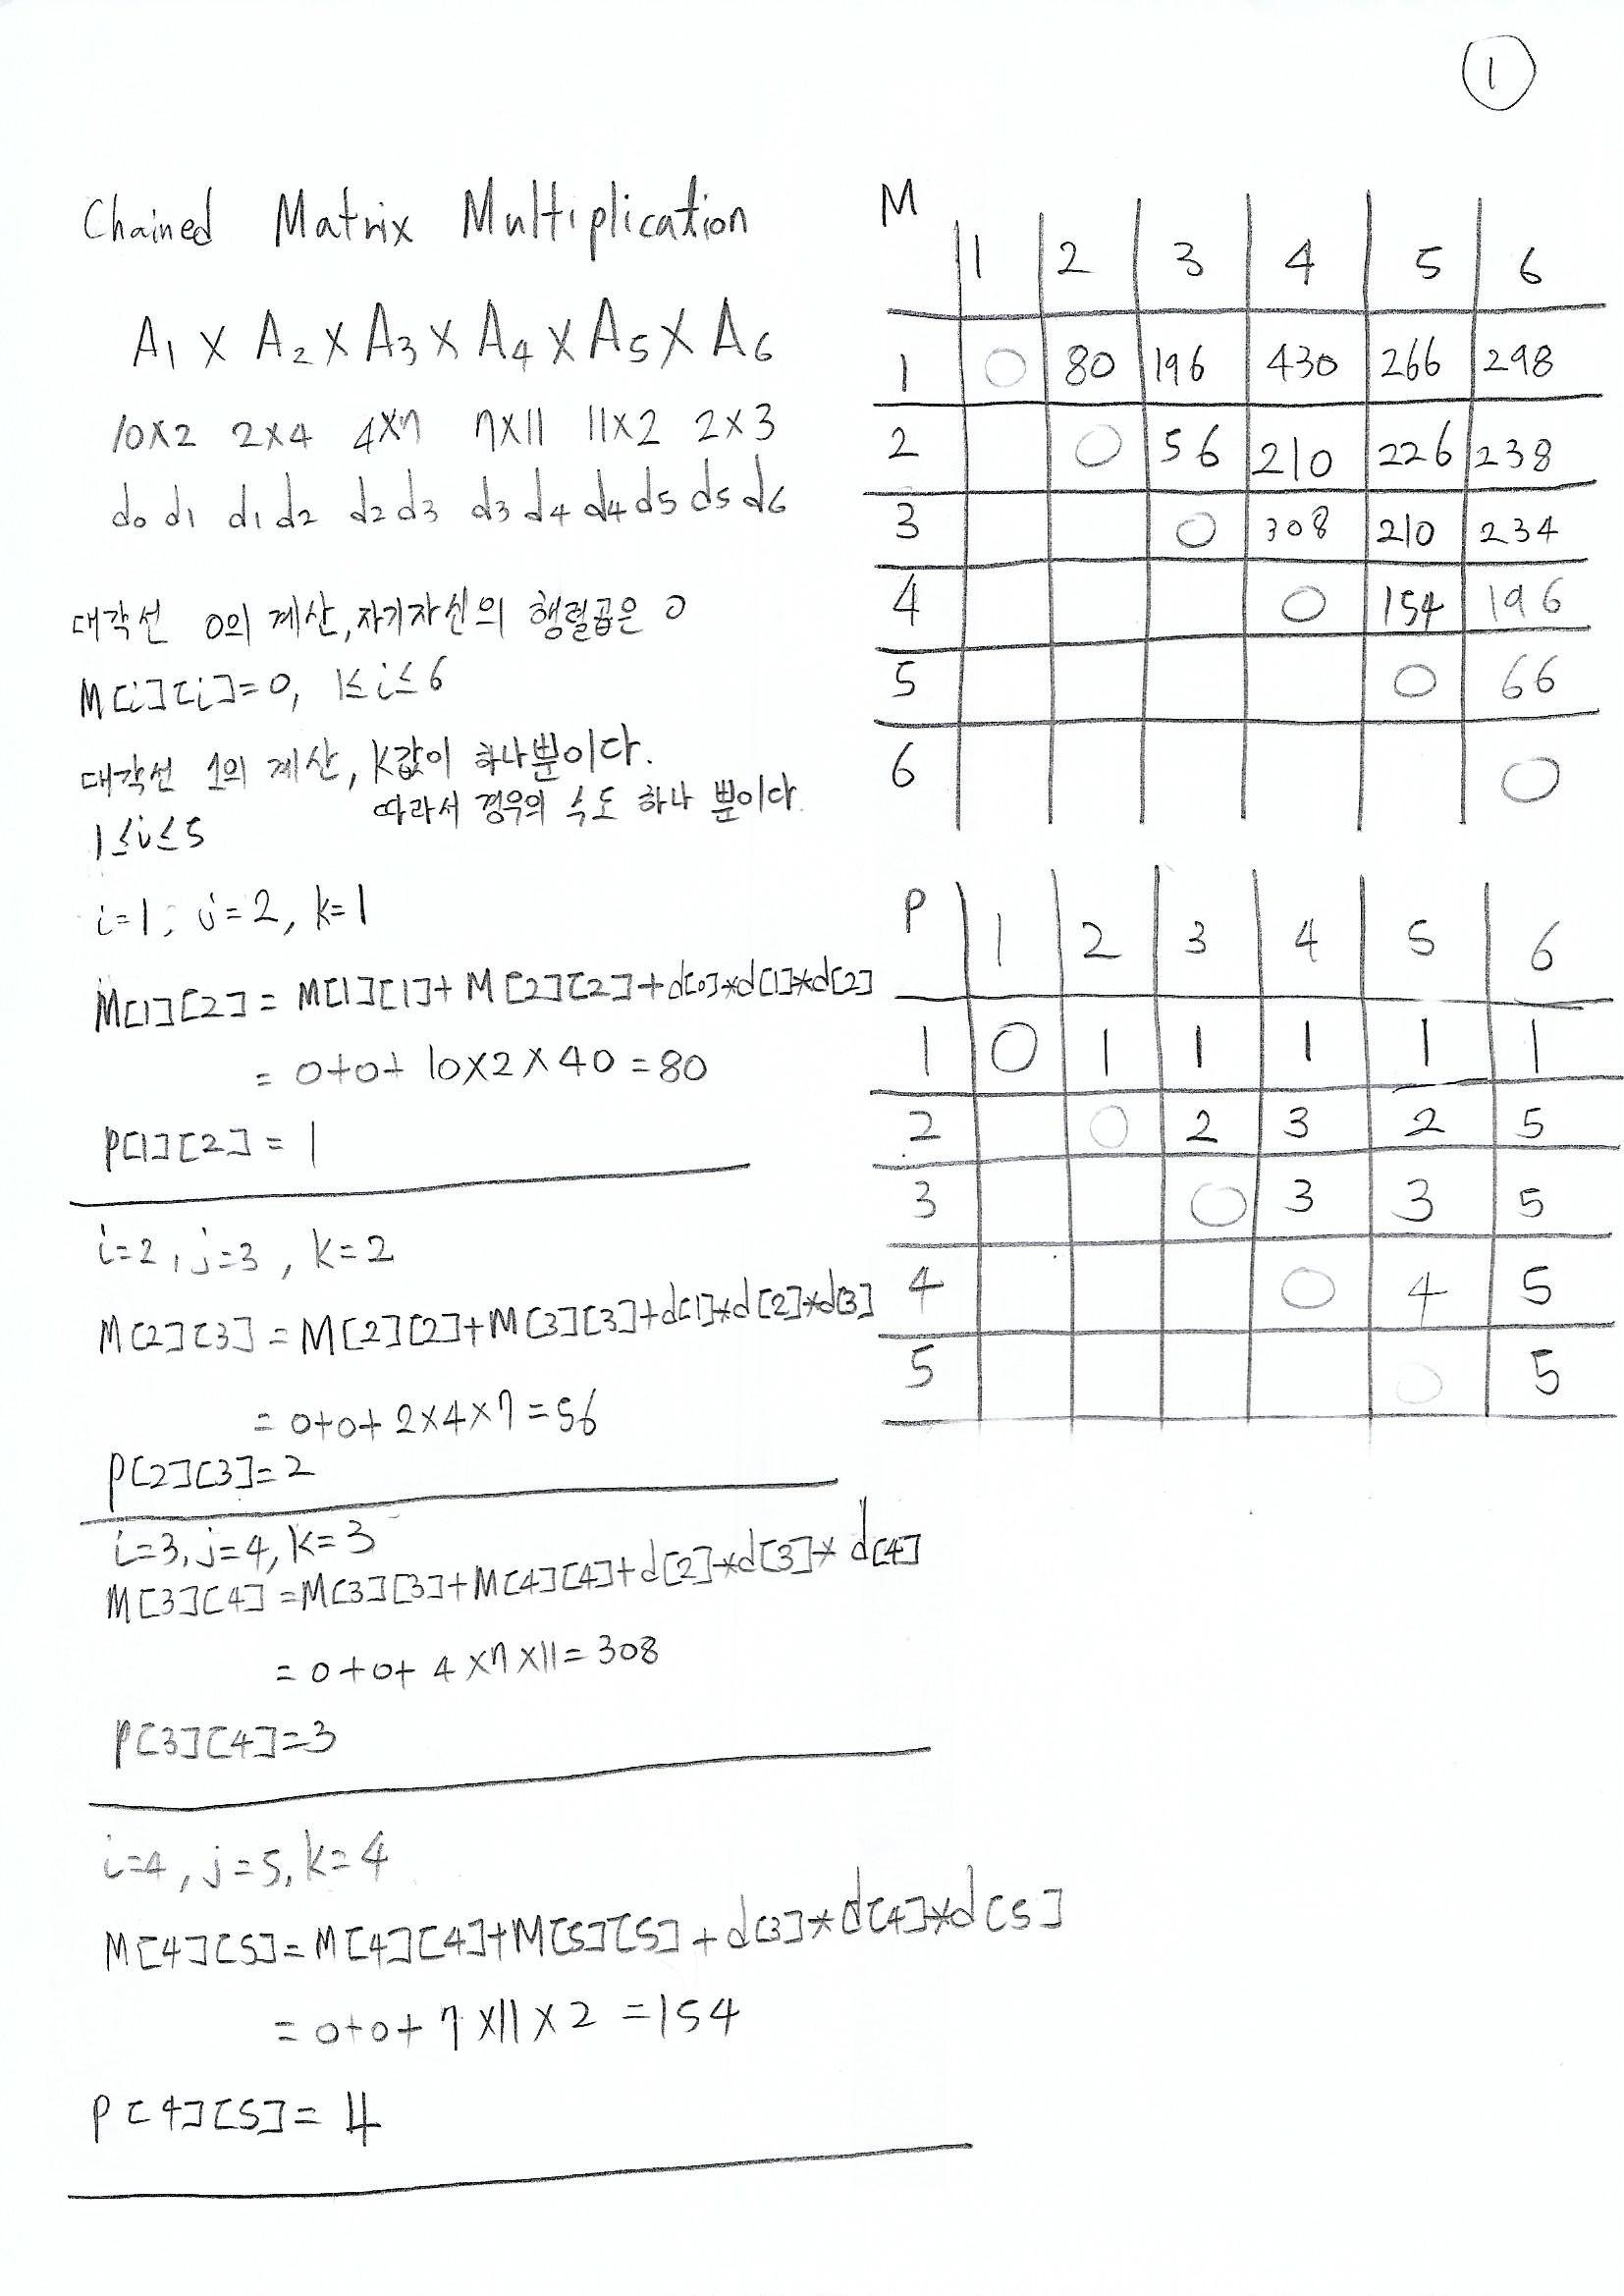 ①
Chained Matrix Multiplication
A1 X A2 X A3 X A4 X A5 X A6
10X2 2X4 4X7 7X11 11X2 2X3
d0 d1 d1 d2 d2 d3 d3 d4 d4 d5 d5 d6
대각선 0의 계산, 자기자신의 행렬곱은 0
M[i][i]=0, 1≤i≤6
대각선 1의 계산, K값이 하나뿐이다.
따라서 경우의 수도 하나 뿐이다.
1≤i≤5
i=1, j=2, k=1
M[1][2] = M[1][1]+M[2][2]+d[0]*d[1]*d[2]
= 0+0+ 10X2X40=80
P[1][2] = 1
i=2, j=3, k=2
M[2][3] = M[2][2]+M[3][3]+d[1]*d[2]*d[3]
= 0+0+ 2X4X7=56
P[2][3]=2
i=3, j=4, k=3
M[3][4] =M[3][3]+M[4][4]+d[2]*d[3]*d[4]
= 0+0+ 4X7X11=308
P[3][4]=3
i=4, j=5, k=4
M[4][5]=M[4][4]+M[5][5]+d[3]*d[4]*d[5]
= 0+0+ 7X11X2 =154
P[4][5]= 4
M 1 2 3 4 5 6
1 0 80 196 430 266 298
2 0 56 210 226 238
3 0 308 210 234
4 0 154 196
5 0 66
6 0
P 1 2 3 4 5 6
1 0 1 1 1 1 1
2 0 2 3 2 5
3 0 3 3 5
4 0 4 5
5 0 5